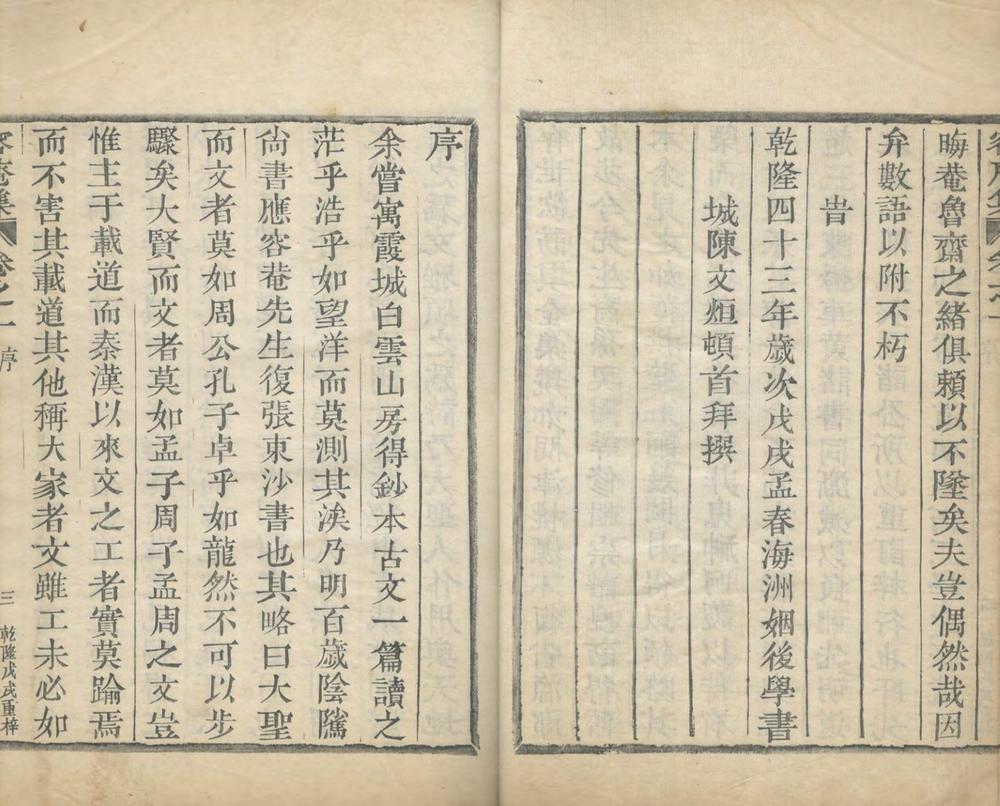 晦菴魯齋之緒俱賴以不墜矣夫豈偶然哉因
弁數語以附不朽
旹
乾隆四十三年歲次戊戌孟春海洲姻後學書
城陳文烜頓首拜撰
序
余嘗寓霞城白雲山房得鈔本古文一篇讀之
茫乎浩乎如望洋而莫測其涘乃明百歲陰隲
尙書應容菴先生復張東沙書也其略曰大聖
而文者莫如周公孔子卓乎如龍然不可以步
驟矣大賢而文者莫如孟子周子孟周之文豈
惟主于載道而秦漢以來文之工者實莫踰焉
而不害其載道其他稱大家者文雖工未必如
容菴集 卷之一 序 三 乾隆戊戌重梓